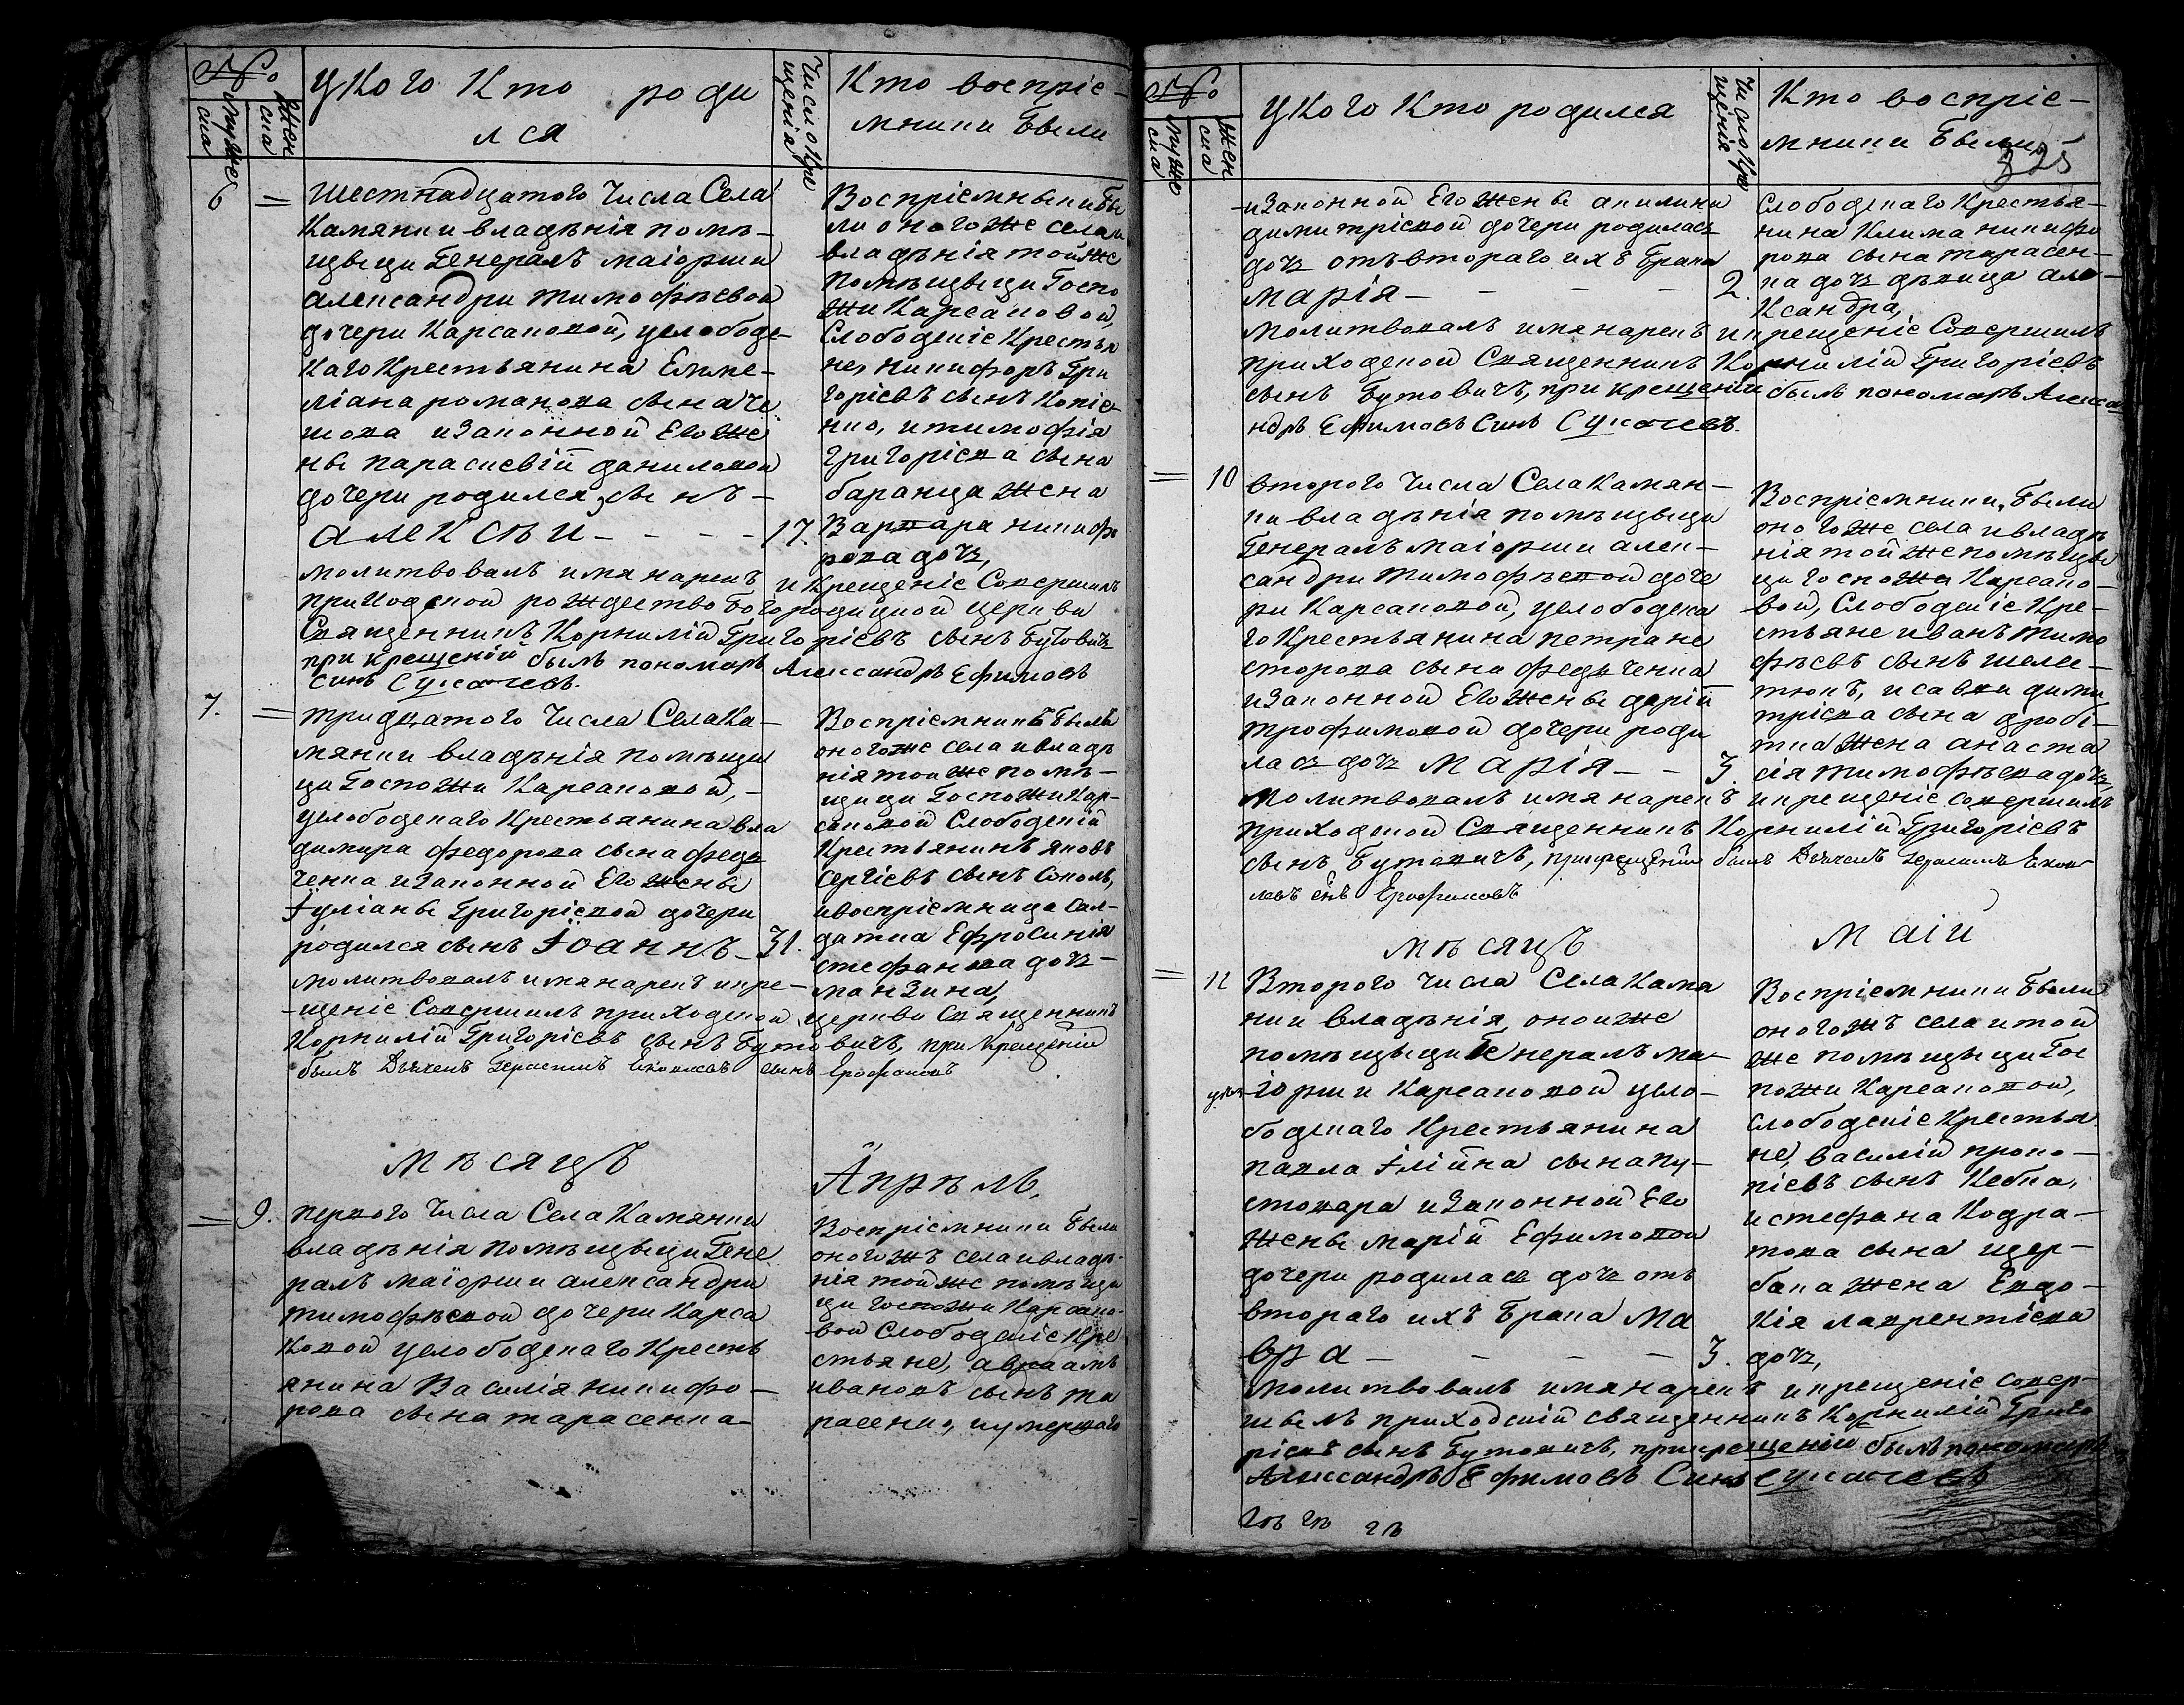 №
мужес
ка
жен
ска
У Кого Кто роди
лся
Число Кре
щенія
Кто воспріе-
мники Были
6 =
шестнадцатого Числа Села
Камянки владѣнія помѣ-
щыци Генералъ маіорши
александри тимофѣевой
дочери Карсаковой, услободс-
Каго Крестьянина Емме-
ліана романова сына Че
шова изаконной Его Же
ны параскевій даниловой
дочери родился сынъ-
алексѣй - - - - 17.
Воспріемники Бы
ли оногоже села и
владѣнія тойже
помѣщыци Госпо
жи Карсаковой,
Слободскіе Крестья
не, никифоръ Гри
горіевъ сынъ Копіе
нко, итимофія
григоріева сына
баранца жена
Варвара никифо
рова дочъ,
молитвовалъ имя нарекъ и Крещеніе Совершилъ
приходской рождество Богородицкой церкви
Священникъ Корнилій Григоріевъ сынъ Бутовичъ
при крещеній былъ пономарь Александръ Ефимовъ
синъ Сукачевъ.
7. =
тридцатого Числа Села Ка-
мянки владѣнія помѣщи
ци Госпожи Карсаковой,-
услободскаго Крестьянина вла
димира федорова сына федъ
ченка изаконной Его жены
Іуліаны Григоріевой дочери
родился сынъ Іоаннъ- 31.
Воспріемникъ былъ
оногоже села ивладѣ
нія тойже помѣ-
щици Госпожи Кар-
саковой Слободскій
Крестьянинъ яковъ
Сергіевъ сынъ Соколъ,
ивоспріемница Сал-
датка Ефросинія
стефанова дочъ-
манзина,
молитвовалъ имя нарекъ икре-
-щеніе Совершилъ приходской церкви Священникъ
Корнилій Григоріевъ сынъ Бутовичъ, при Крещеній
былъ Дьячекъ Герасимъ Яковлевъ сынъ Ерофаловъ
Мѣсяцъ Апрѣль,
= 9.
первого Числа Села Камянки
владѣнія помѣщыци Гене
ралъ маіорши александри
тимофѣевой дочери Карса
Ковой услободскаго Кресть
янина Василія никифо-
рова сына тарасенка
Воспріемники Были
оногожъ села ивладѣ-
нія тойже помѣщи
ци госпожи Карсако-
вой Слободскіе Кре
стьяне, авраамъ
ивановъ сынъ та
расенко, иумершаго
№
муже
ска
Жен
ска
У Кого Кто родился
Число Кре
щенія
Кто воспріе-
мники Были
325
-изаконной Его Жены акилини
димитріевой дочери родилась
дочъ отъвтораго ихъ Брака
марія - - - - 2.
Слободскаго Крестья-
нина Клима никифо
рова сына тарасен-
ка дочъ дѣвица але-
Ксандра,
молитвовалъ имянарекъ икрещеніе Совершилъ
приходской Священникъ Корнилій Григоріевъ
сынъ Бутовичъ, при крещеніи былъ пономарь Алекса
ндръ Ефимовъ Синъ Сукачевъ.
= 10
второго Числа Села Камян-
ки владѣнія помѣщыци
Генералъ маіорши алек-
сандри тимофѣевой доче
ри Карсаковой, услободска
го Крестьянина петра не
сторова сына федъченка
изаконной Его Жены дарій
трофимовой дочери роди
лась дочъ марія - - 3.
Воспріемники, Были
оногоже села ивладѣ
нія тойже помѣщы
ци госпожи Карсако-
вой, Слободскіе Кре-
стьяне иванъ тимо
фѣевъ сынъ шелес-
тюкъ, исавки дими
тріева сына дробі-
тка жена анаста
сія тимофѣева дочъ,
молитвовалъ имянарекъ икрещеніе совершилъ
приходской Священникъ Корнилій Григоріевъ
сынъ Бутовичъ, прикрещеніи былъ Дьячекъ Герасимъ Яков
левъ снъ Ерофаловъ
мѣсяцъ Маій
= 11
Второго Числа Села Камя
нки владѣнія, онойже
помѣщыци Генералъ ма-
іорши Карсаковой усло-
бодскаго Крестьянина
павла Ілійна сына пу-
стовара изаконной Его
Жены марій Ефимовой
дочери родилась дочъ отъ
второго ихъ Брака Ма
вра - - - - 3.
Воспріемники Были
оногожъ села итой
же помѣщыци Гос
пожи Карсаковой,
Слободскіе Крестья
не, василій проко-
піевъ сынъ Кебка,
истефана Кодра-
това сына щер-
бака жена Евдо-
Кія лаврентіева
дочъ,
молитвовалъ имянарекъ икрещеніе совер-
шылъ приходскій священникъ Корнилій Григо
ріевъ сынъ Бутовичъ, прикрещеніи былъ пономарь
Александръ Ефимовъ Синъ Сукачевъ